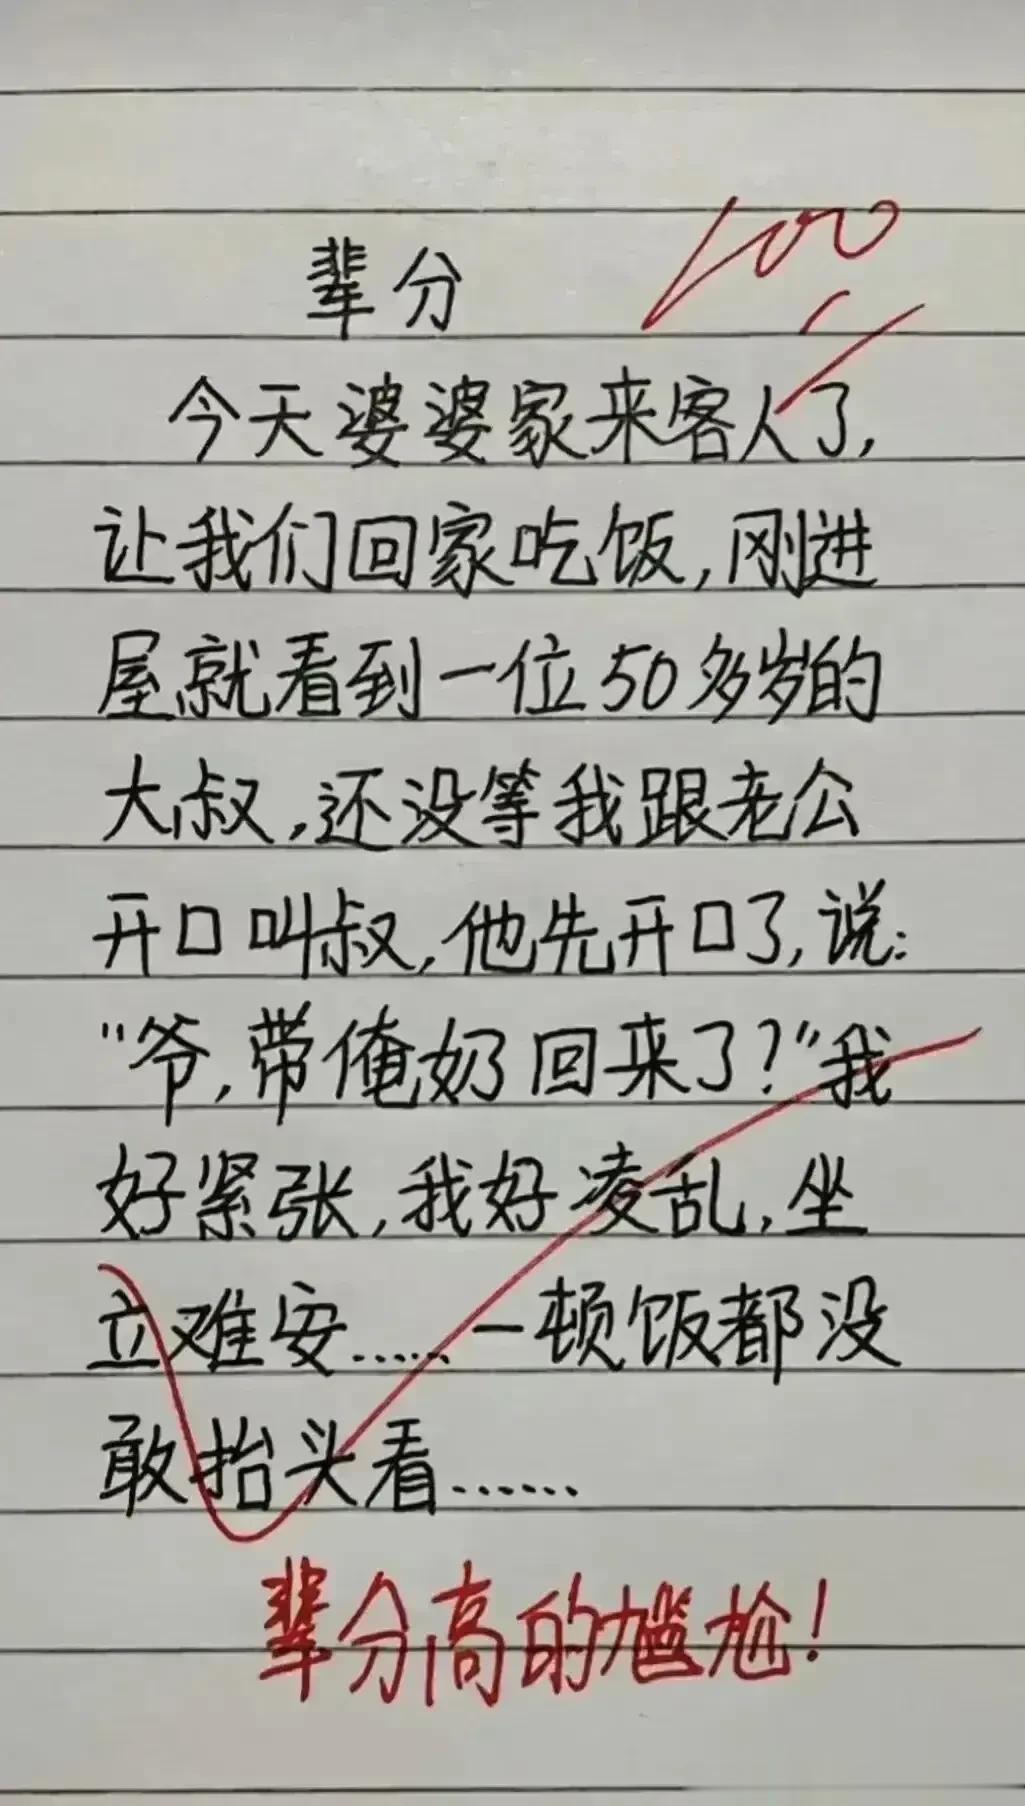 100
辈分
今天婆婆家来客人了,
让我们回家吃饭,刚进
屋就看到一位50多岁的
大叔,还没等我跟老公
开口叫叔,他先开口了,说:
"爷,带俺奶回来了?"我
好紧张,我好凌乱,坐
立难安……一顿饭都没
敢抬头看……
辈分高的尴尬!